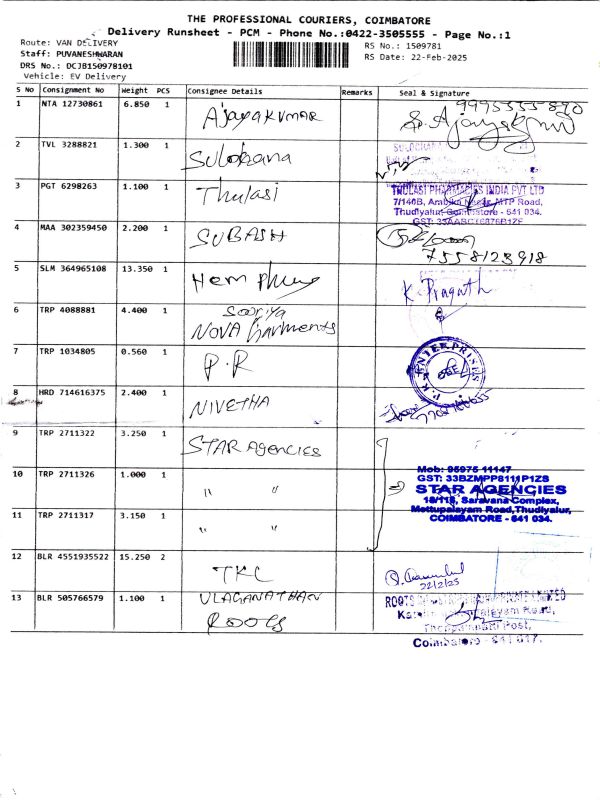 THE PROFESSIONAL COURIERS, COIMBATORE
Delivery Runsheet - PCM - Phone No.:0422-3505555 - Page No.:1
Route: VAN DELIVERY
Staff: PUVANESHWARAN
DRS No.: DCJB150978101
Vehicle: EV Delivery
RS No.: 1509781
RS Date: 22-Feb-2025
S No Consignment No Weight PCS Consignee Details Remarks Seal & Signature
1 NTA 12730861 6.850 1 Ajayakumar
2 TVL 3288821 1.300 1 Sulochana
3 PGT 6298263 1.100 1 Thulasi
THULASI PHARMACIES INDIA PVT LTD
7/140B, Ambika Nagar, MTP Road,
Thudiyalur, Coimbatore - 641 034.
4 MAA 302359450 2.200 1 SUBASH
7558123918
5 SLM 364965108 13.350 1 Hem
K. Pragath
6 TRP 4088881 4.400 1 Sooriya
NOVA Garments
7 TRP 1034805 0.560 1 P.R
ENTERPRISES
8 HRD 714616375 2.400 1 NIVETHA
9 TRP 2711322 3.250 1 STAR Agencies
10 TRP 2711326 1.000 1 " "
Mob: 95975 11147
GST: 33BZMPP8111P1ZS
STAR AGENCIES
18/118, Saravana Complex,
Mettupalayam Road, Thudiyalur,
COIMBATORE - 641 034.
11 TRP 2711317 3.150 1 " "
12 BLR 4551935522 15.250 2 TKC
22/2/25
13 BLR 505766579 1.100 1 ULAGANATHAN
ROOTS
ROOTS PRIVATE LIMITED
Post,
Coimbatore - 641 017.